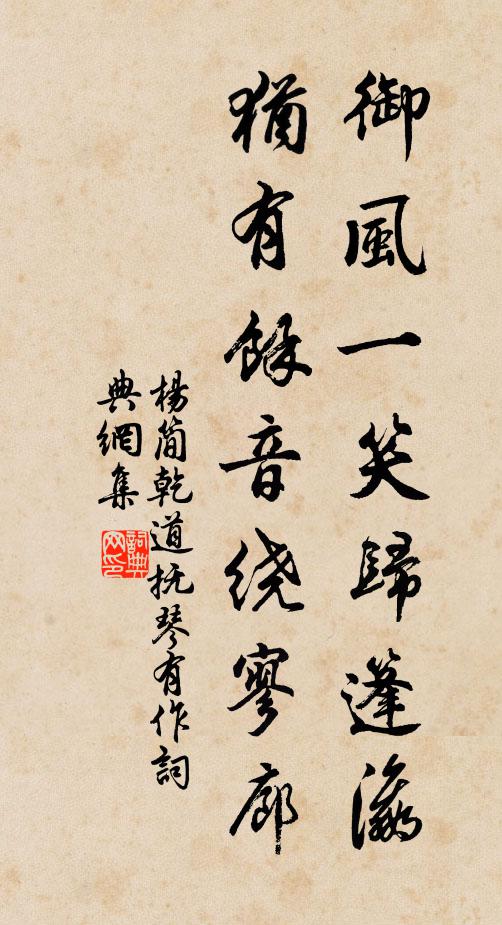 御風一笑歸蓬瀛
猶有餘音繞寥廊
楊簡乾道抚琴有作詞
典網集
詞典
网印